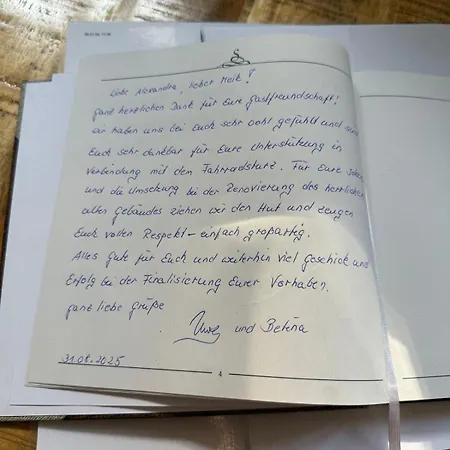 Liebe Alexandra, lieber Meik!
Ganz herzlichen Dank für Eure Gastfreundschaft!
Wir haben uns bei Euch sehr wohl gefühlt und sind
Euch sehr dankbar für Eure Unterstützung in
Verbindung mit dem Fahrradsturz. Für Eure Ideen
und die Umsetzung bei der Renovierung des herrlichen
alten Gebäudes ziehen wir den Hut und zeugen
Euch vollen Respekt – einfach großartig.
Alles Gute für Euch und weiterhin viel Geschick und
Erfolg bei der Finalisierung Eurer Vorhaben.
ganz liebe Grüße
und Betina
31.08.2025
4